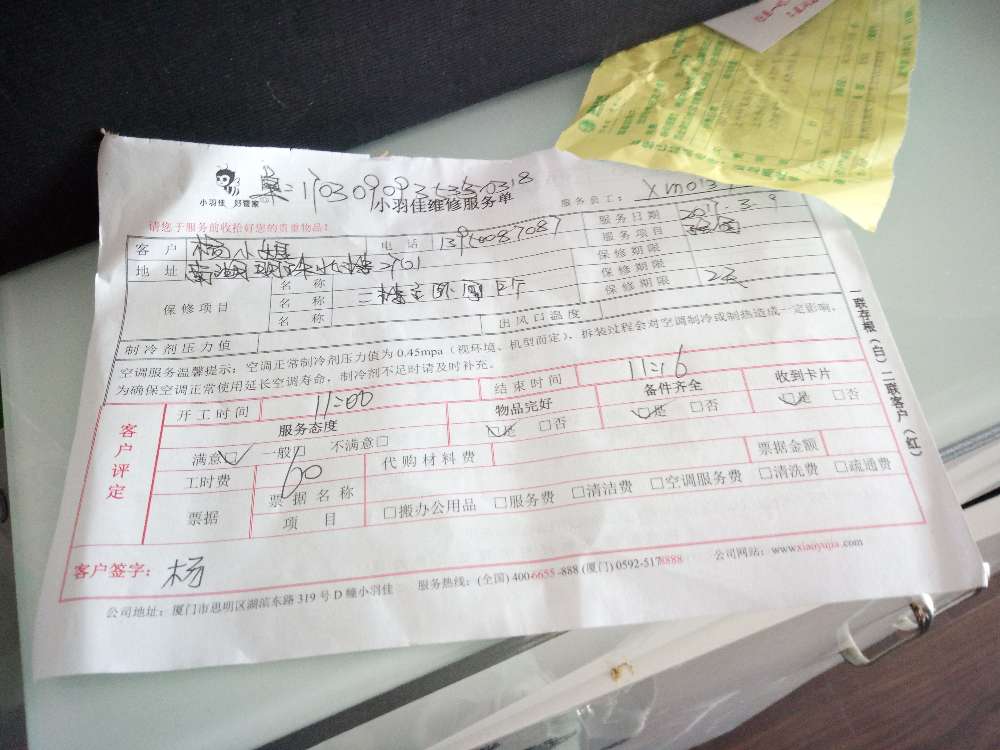 小羽佳 好管家
小羽佳维修服务单
服务员工：
请您于服务前收拾好您的贵重物品！
客户 杨小姐 电话 服务日期 2017.3.9
地址 服务项目
保修项目 名称 保修期限
名称 保修期限
名称 保修期限
制冷剂压力值 出风口温度
空调服务温馨提示：空调正常制冷剂压力值为 0.45mpa（视环境、机型而定），拆装过程会对空调制冷或制热造成一定影响，
为确保空调正常使用延长空调寿命，制冷剂不足时请及时补充。
客户评定
开工时间 11:00 结束时间 11:16
服务态度 物品完好 备件齐全 收到卡片
满意□ 一般□ 不满意□ □是 □否 □是 □否 □是 □否
工时费 60 代购材料费 票据金额
票据 票据名称
项目 □搬办公用品 □服务费 □清洁费 □空调服务费 □清洗费 □疏通费
客户签字： 杨
公司地址：厦门市思明区湖滨东路 319 号 D 幢小羽佳 服务热线：(全国) 400-6655-888 (厦门) 0592-5178888 公司网站：www.xiaoyujia.com
一联存根（白）二联客户（红）